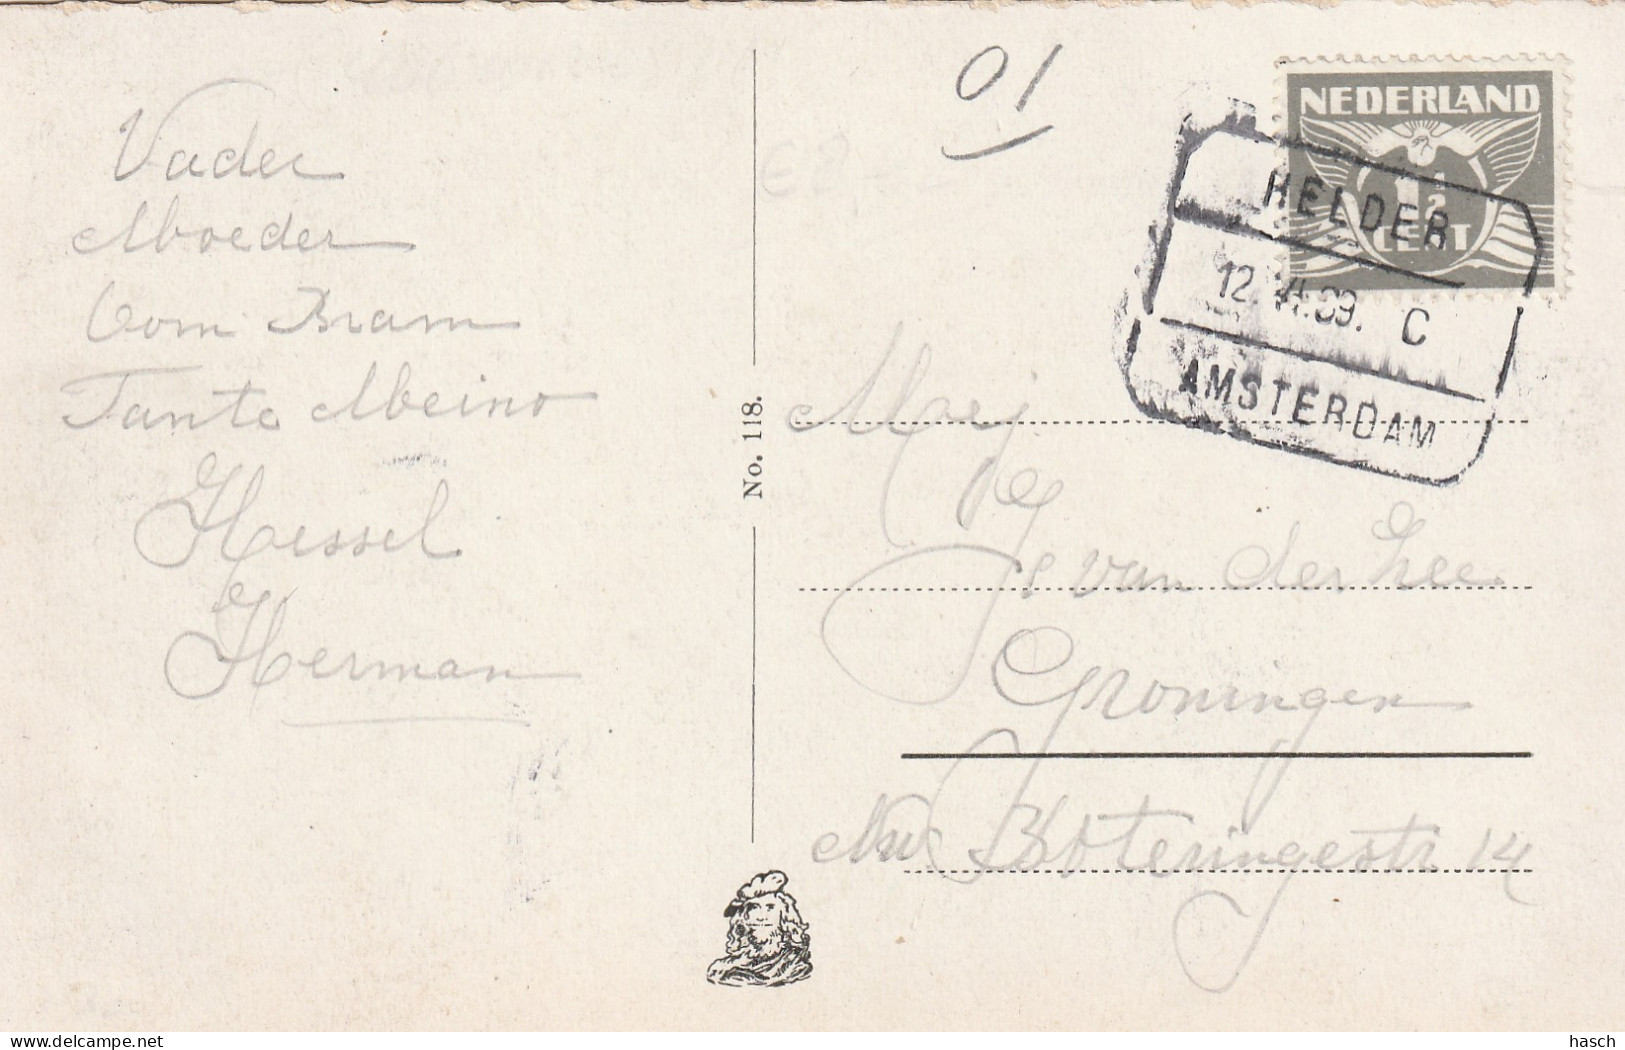 Vader
Moeder
Oom Bram
Tante Meino
Hessel
Herman
No. 118.
01
NEDERLAND
1 1/2
CENT
HELDER
12. VI.39. C
AMSTERDAM
Mej
van der Zee
Groningen
Nw. Boteringestr 14
delcampe.net
hasch